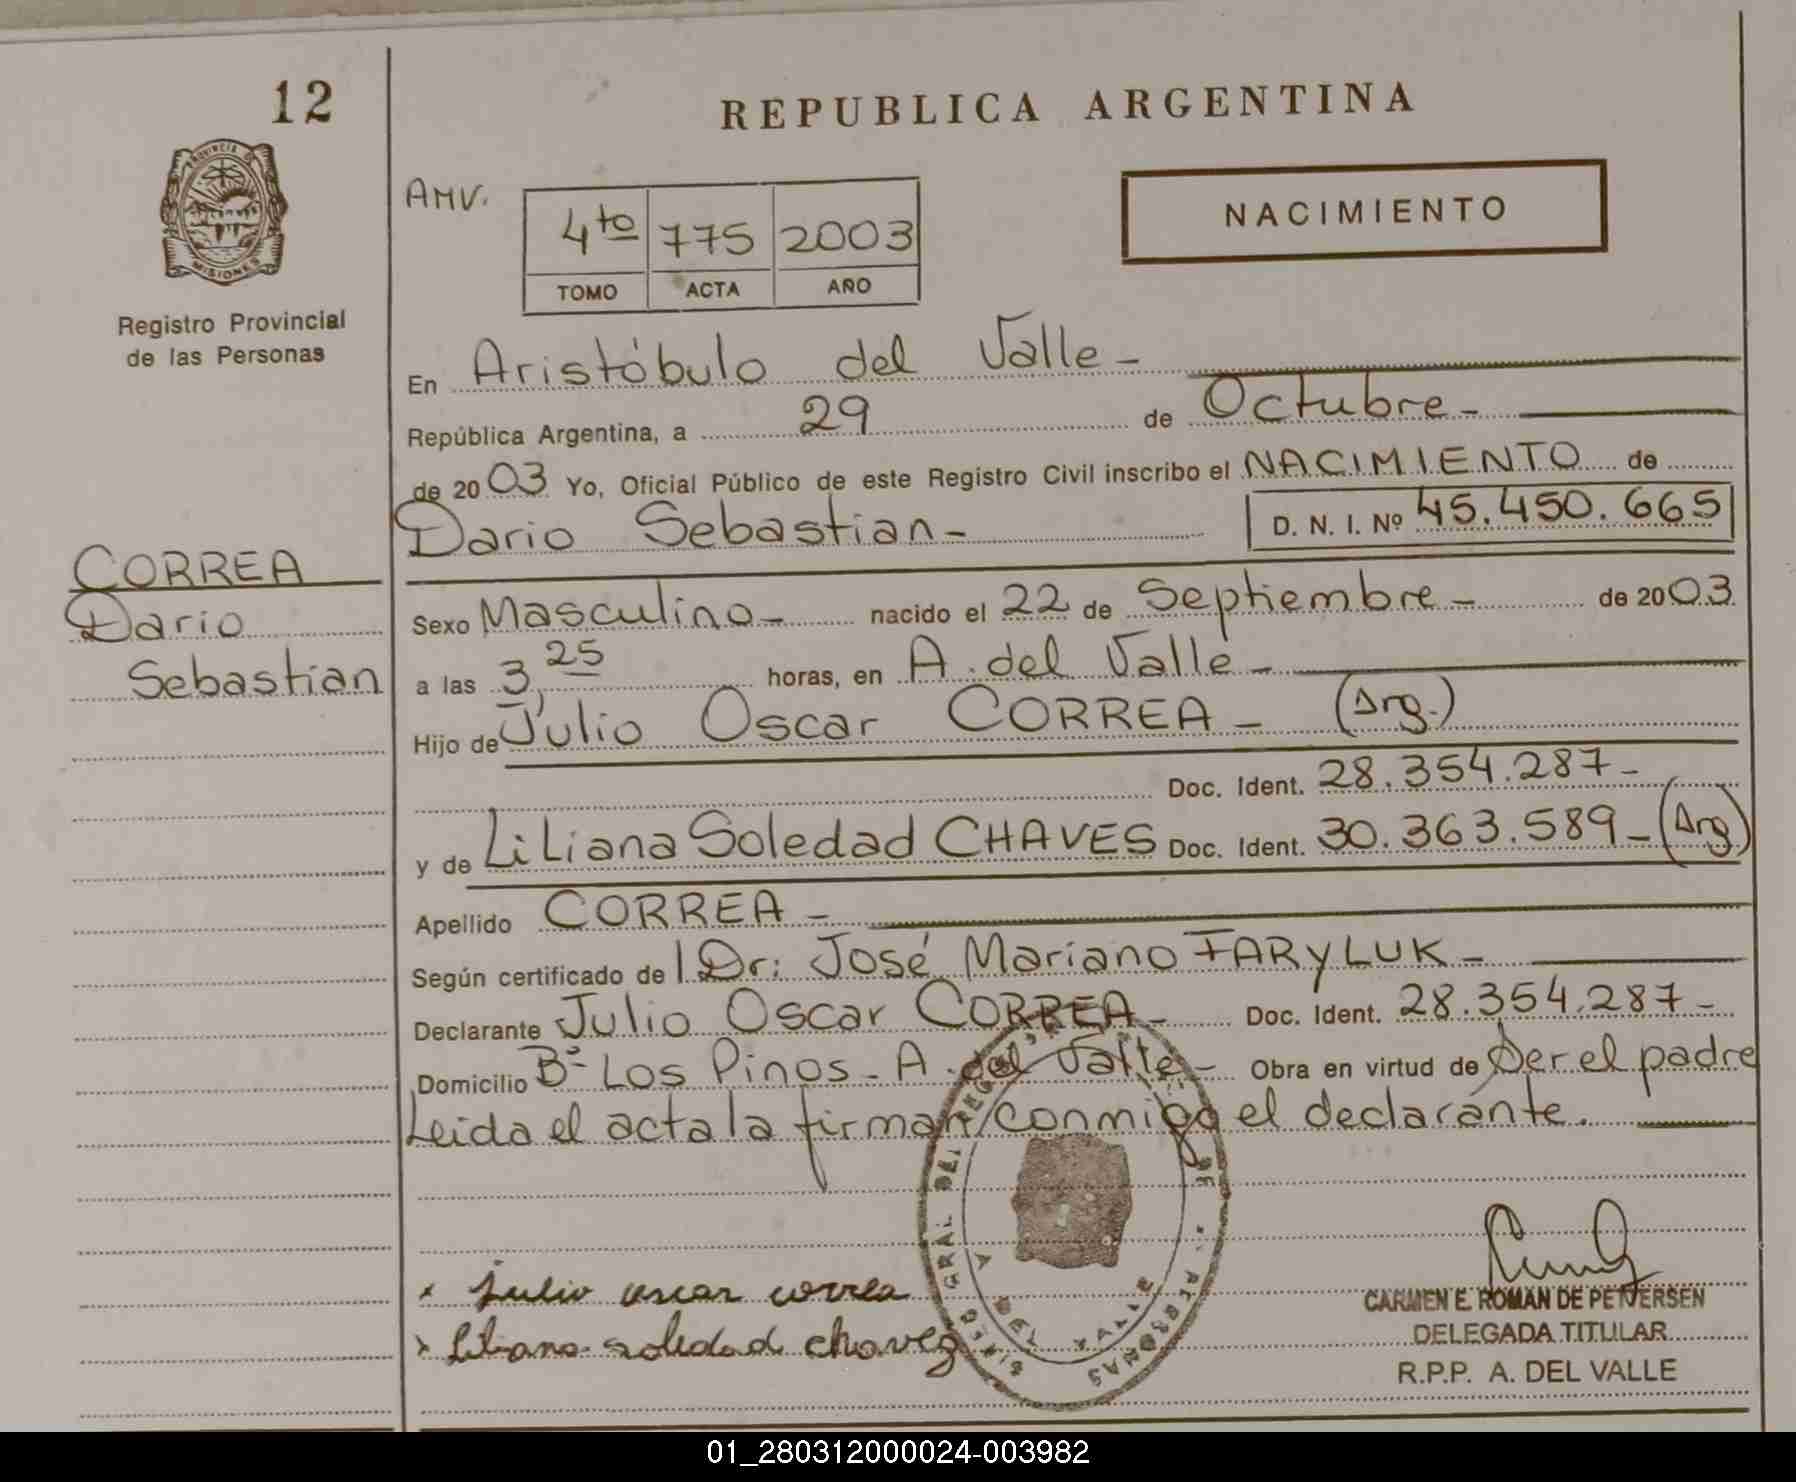 12
REPUBLICA ARGENTINA
PROVINCIA DE
MISIONES
Registro Provincial
de las Personas
AMV.
4to 775 2003
TOMO ACTA AÑO
NACIMIENTO
En Aristóbulo del Valle -
República Argentina, a 29 de Octubre -
de 2003 Yo, Oficial Público de este Registro Civil inscribo el NACIMIENTO de
Dario Sebastian - D. N. I. Nº 45.450.665
CORREA
Dario
Sebastian
Sexo Masculino - nacido el 22 de Septiembre - de 2003
a las 3,25 horas, en A. del Valle -
Hijo de Julio Oscar CORREA - (Arg.)
Doc. Ident. 28.354.287 -
y de Liliana Soledad CHAVES Doc. Ident. 30.363.589 - (Arg)
Apellido CORREA -
Según certificado de l Dr: José Mariano FARYLUK -
Declarante Julio Oscar CORREA - Doc. Ident. 28.354.287 -
Domicilio Bº Los Pinos - A. del Valle - Obra en virtud de Ser el padre
Leida el acta la firman conmigo el declarante.
julio oscar correa
liliana soledad chavez
A DEL VALLE
CARMEN E. ROMAN DE PETVERSEN
DELEGADA TITULAR
R.P.P. A. DEL VALLE
01_280312000024-003982